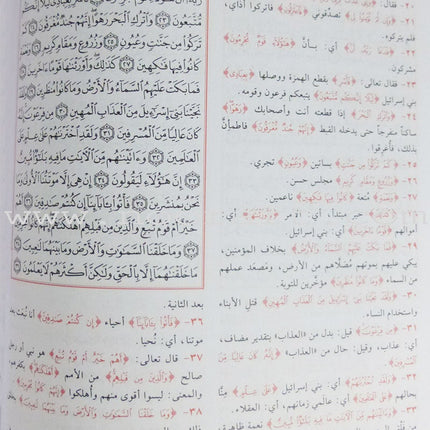 مُّتَّبَعُونَ ﴿٢٣﴾ وَاتْرُكِ الْبَحْرَ رَهْوًا إِنَّهُمْ جُندٌ مُّغْرَقُونَ ﴿٢٤﴾
تَرَكُوا مِن جَنَّاتٍ وَعُيُونٍ ﴿٢٥﴾ وَزُرُوعٍ وَمَقَامٍ كَرِيمٍ
كَانُوا فِيهَا فَاكِهِينَ ﴿٢٧﴾ كَذَٰلِكَ وَأَوْرَثْنَاهَا قَوْمًا آخَرِينَ ﴿٢٨﴾
فَمَا بَكَتْ عَلَيْهِمُ السَّمَاءُ وَالْأَرْضُ وَمَا كَانُوا مُنظَرِينَ ﴿٢٩﴾
نَجَّيْنَا بَنِي إِسْرَائِيلَ مِنَ الْعَذَابِ الْمُهِينِ ﴿٣٠﴾
كَانَ عَالِيًا مِّنَ الْمُسْرِفِينَ ﴿٣١﴾ وَلَقَدِ اخْتَرْنَاهُمْ عَلَىٰ عِلْمٍ عَلَى
الْعَالَمِينَ ﴿٣٢﴾ وَآتَيْنَاهُم مِّنَ الْآيَاتِ مَا فِيهِ بَلَاءٌ مُّبِينٌ
﴿٣٣﴾ إِنَّ هَٰؤُلَاءِ لَيَقُولُونَ ﴿٣٤﴾ إِنْ هِيَ إِلَّا مَوْتَتُنَا الْأُولَىٰ وَمَا
نَحْنُ بِمُنشَرِينَ ﴿٣٥﴾ فَأْتُوا بِآبَائِنَا إِن كُنتُمْ صَادِقِينَ ﴿٣٦﴾
خَيْرٌ أَمْ قَوْمُ تُبَّعٍ وَالَّذِينَ مِن قَبْلِهِمْ
وَمَا خَلَقْنَا السَّمَاوَاتِ وَالْأَرْضَ وَمَا بَيْنَهُمَا لَاعِبِينَ
مَا خَلَقْنَاهُمَا إِلَّا بِالْحَقِّ وَلَٰكِنَّ أَكْثَرَهُمْ لَا يَعْلَمُونَ
بعد الثانية.
٣٦- ﴿فَأْتُوا بِآبَائِنَا﴾ أحياء ﴿إِن كُنتُمْ صَادِقِينَ﴾ أنا نُبعث بعد
موتنا، أي: نُحيا.
٣٧- قال تعالى: ﴿أَهُمْ خَيْرٌ أَمْ قَوْمُ تُبَّعٍ﴾ هو نبي أو رجل
صالح ﴿وَالَّذِينَ مِن قَبْلِهِمْ﴾ من الأمم ﴿أَهْلَكْنَاهُمْ﴾ بكفرهم،
والمعنى: ليسوا أقوى منهم وأهلكوا ﴿إِنَّهُمْ كَانُوا مُجْرِمِينَ﴾
٣٨- ﴿وَمَا خَلَقْنَا السَّمَاوَاتِ وَالْأَرْضَ وَمَا بَيْنَهُمَا لَاعِبِينَ﴾
تصدّقوني ﴿فَاعْتَزِلُونِ﴾ فاتركوا أذاي،
فلم يتركوه.
٢٢- أي: بأنَّ ﴿هَٰؤُلَاءِ قَوْمٌ مُّجْرِمُونَ﴾
مشركون.
٢٣- فقال تعالى: ﴿فَأَسْرِ﴾ بقطع الهمزة ووصلها ﴿بِعِبَادِي﴾
بني إسرائيل ﴿لَيْلًا إِنَّكُم مُّتَّبَعُونَ﴾ يتبعكم فرعون وقومه.
٢٤- إذا قطعته أنت وأصحابك ﴿رَهْوًا﴾
ساكناً منفرجاً حتى يدخله القبط ﴿إِنَّهُمْ جُندٌ مُّغْرَقُونَ﴾ فاطمأنَّ
بذلك، فأغرقوا.
بساتين ﴿وَعُيُونٍ﴾ تجري.
﴿وَزُرُوعٍ وَمَقَامٍ كَرِيمٍ﴾ مجلس حسن.
﴿وَنَعْمَةٍ﴾ مُتعة ﴿كَانُوا فِيهَا فَاكِهِينَ﴾ ناعمين.
﴿كَذَٰلِكَ﴾ خبر مبتدأ، أي: الأمر ﴿وَأَوْرَثْنَاهَا﴾ أي:
أموالهم ﴿قَوْمًا آخَرِينَ﴾ أي: بني إسرائيل.
٢٩- ﴿فَمَا بَكَتْ عَلَيْهِمُ السَّمَاءُ وَالْأَرْضُ﴾ بخلاف المؤمنين،
يبكي عليهم بموتهم مُصلّاهم من الأرض، ومَصعد عملهم
﴿وَمَا كَانُوا مُنظَرِينَ﴾ مؤخّرين للتوبة.
﴿وَلَقَدْ نَجَّيْنَا بَنِي إِسْرَائِيلَ مِنَ الْعَذَابِ الْمُهِينِ﴾ قتل الأبناء
واستخدام النساء.
﴿مِن فِرْعَوْنَ﴾ قيل: بدل من «العذاب» بتقدير مضاف،
أي: عذاب، وقيل: حال من «العذاب» ﴿إِنَّهُ كَانَ عَالِيًا مِّنَ
الْمُسْرِفِينَ﴾
أي: بني إسرائيل ﴿عَلَىٰ عِلْمٍ﴾ منّا
بحالهم ﴿عَلَى الْعَالَمِينَ﴾ أي: عالَمي زمانهم، أي: العقلاء.
٣٣- ﴿وَآتَيْنَاهُم مِّنَ الْآيَاتِ مَا فِيهِ بَلَاءٌ مُّبِينٌ﴾ نعمة ظاهرة،